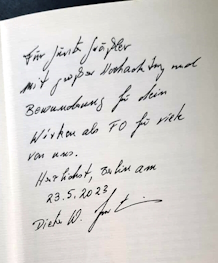 Für
mit großer Hochachtung und
Bewunderung für dein
Wirken als FO für viele
von uns.
Herzlichst, Berlin am
23.5.2023
Dieter W.